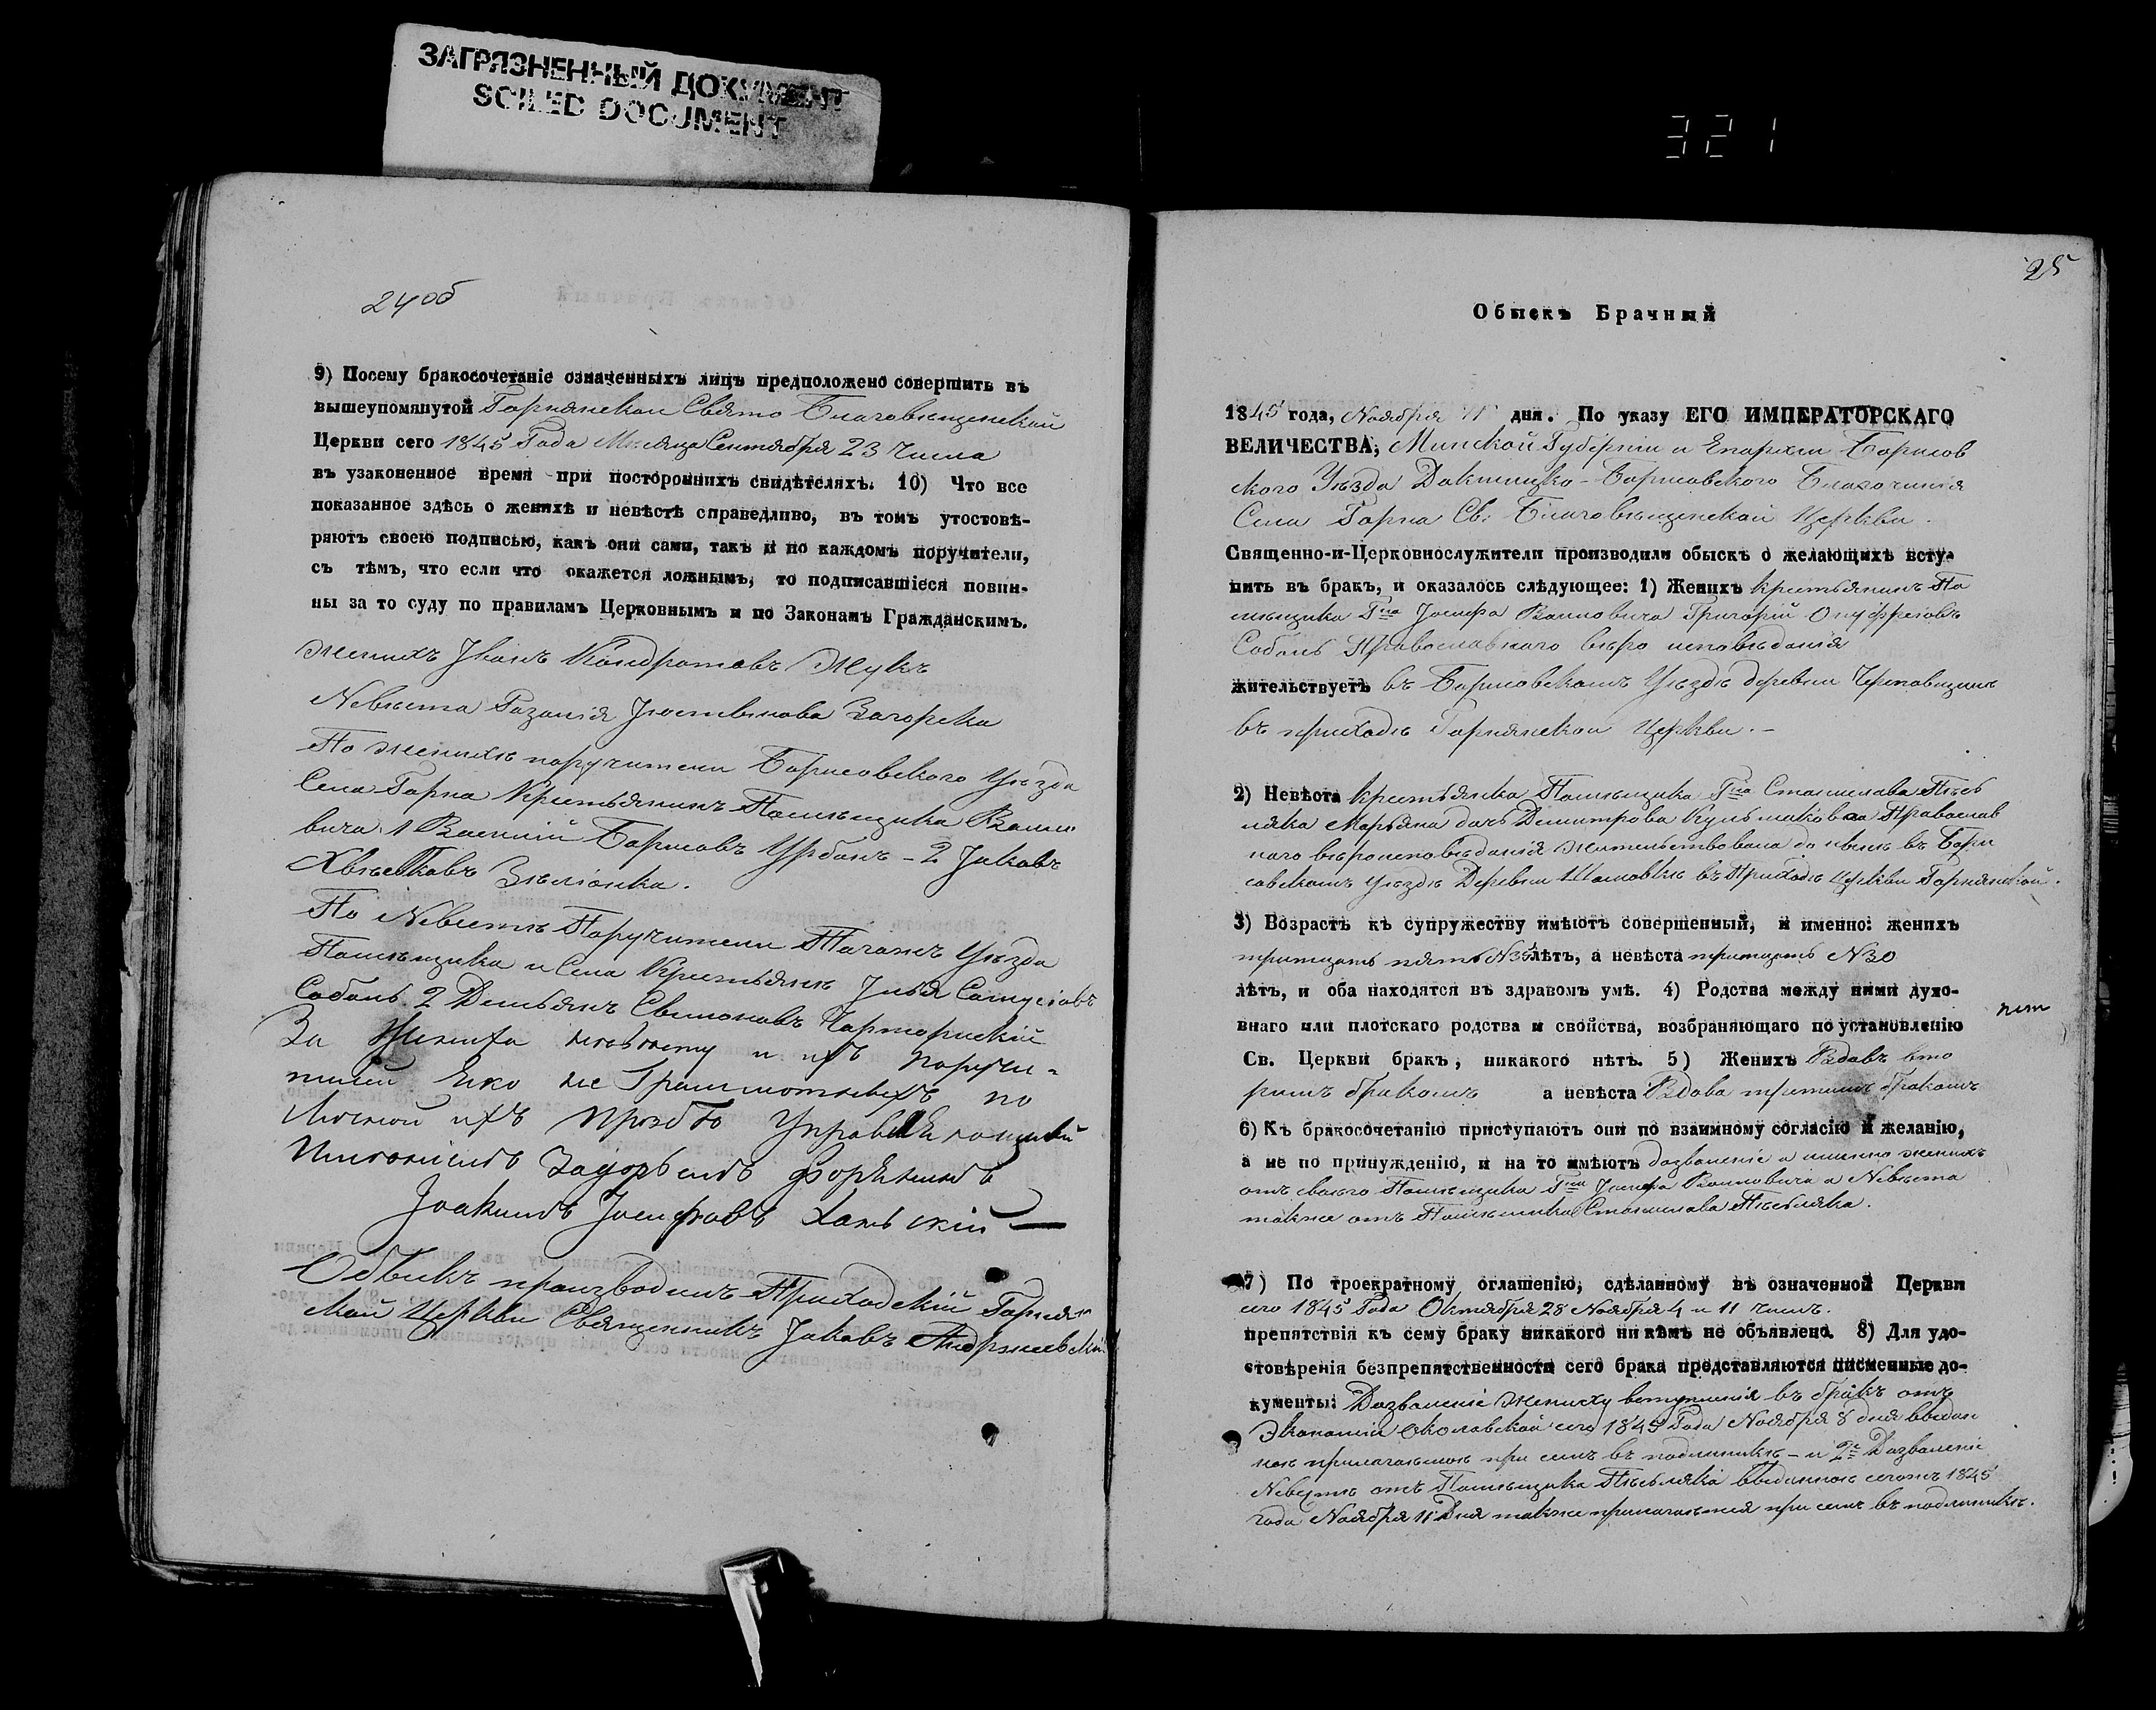 ЗАГРЯЗНЕННЫЙ ДОКУМЕНТ
SOILED DOCUMENT
321
24 об
9) Посему бракосочетаніе означенныхъ лицъ предположено совершить въ
вышеупомянутой Горнянской Свято Благовещенской
Церкви сего 1845 Года Месяца Сентября 23 Числа
въ узаконенное время при постороннихъ свидѣтеляхъ. 10) Что все
показанное здѣсь о женихѣ и невѣстѣ справедливо, въ томъ утостовѣ-
ряютъ своею подписью, какъ они сами, такъ и по каждомъ поручители,
съ тѣмъ, что если что окажется ложнымъ, то подписавшіеся повин-
ны за то суду по правиламъ Церковнымъ и по Законамъ Гражданскимъ.
Женихъ Іванъ Кондратовъ Жукъ
Невѣста Розалія Загорска
По женихѣ поручители Борисовского Уѣзда
Села Горна Крестьянинъ Помѣщика Ванко
вича 1 Василій Борисовъ Урбанъ - 2 Яковъ
Зѣліонка.
По Невѣстѣ Поручители Уѣзда
Помѣщика и Села Крестьяне Илья
Соболь 2 Демьянъ Чарторискій
За Жениха невѣсту и ихъ поручи-
тилей Яко не Граммотныхъ по
Личной ихъ прозбѣ
Іоакимъ Іосифовъ
Обыскъ производилъ Приходскій Горнян
ской Церкви Священникъ Іаковъ
25
Обыскъ Брачный
1845 года, Ноября 11 дня. По указу ЕГО ИМПЕРАТОРСКАГО
ВЕЛИЧЕСТВА, Минской Губерніи и Епархіи Борисов
ского Уѣзда Докшицко-Борисовского Благочинія
Села Горна Св: Благовѣщенской Церкви.
Священно-и-Церковнослужители производили обыскъ о желающихъ всту-
пить въ бракъ, и оказалось слѣдующее: 1) Женихъ крестьянинъ По
мѣщика Гна Іосифа Ванковича Григорій Онуффріовъ
Соболь Православного вѣро исповѣданія
жительствуетъ въ Борисовскомъ Уѣздѣ деревни
въ приходѣ Горнянской Церкви.-
2) Невѣста крестьянка Помѣщика Гна Станислава Пѣсь
ляка Марьяна дочь Димитрова Кульмакова Православ
ного вѣроисповѣданія жительствовала до нынѣ въ Бори
совскомъ уѣздѣ Деревни въ Приходѣ Церкви Горнянской.
3) Возрастъ къ супружеству имѣютъ совершенный, и именно: женихъ
тритцать пять N35 лѣтъ, а невѣста тритцать N30
лѣтъ, и оба находятся въ здравомъ умѣ. 4) Родства между ними духо-
внаго или плотскаго родства и свойства, возбраняющаго по установленію
нѣт
Св. Церкви бракъ, никакого нѣтъ. 5) Женихъ Вдовъ вто
рымъ бракомъ а невѣста Вдова третимъ бракомъ
6) Къ бракосочетанію приступаютъ они по взаимному согласію и желанію,
а не по принужденію, и на то имѣютъ дозволеніе а имянно женихъ
отъ своего Помѣщика Гна Іосифа Ванковича а Невѣста
также отъ Помѣщика Станислава Пѣсьляка.
7) По троекратному оглашенію, сдѣланному въ означенной Церкви
сего 1845 Года Октября 28 Ноября 4 и 11 числъ.
препятствія къ сему браку никакого ни кѣмъ не объявлено. 8) Для удо-
стовѣренія безпрепятственности сего брака представляются писменные до-
кументы: Дозволеніе жениху вступленія въ бракъ отъ
Экономіи Околовской сего 1845 Года Ноября 8 дня выдан
ное прилагаемое при семъ въ подлинникѣ - и 2е Дозволеніе
Невѣстѣ отъ Помѣщика Пѣсьляка выданное сегожъ 1845
года Ноября 11 Дня также прилагаемое при семъ въ подлинникѣ.